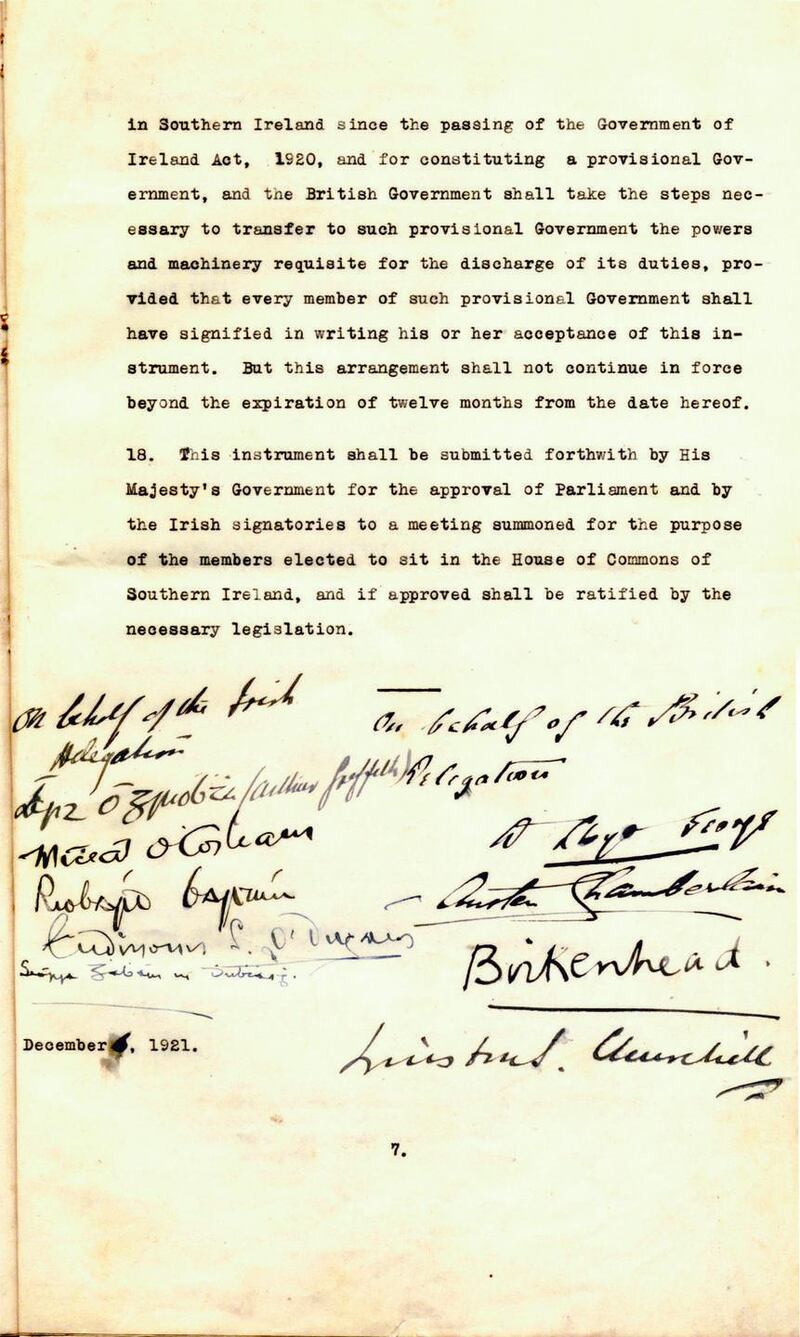 in Southern Ireland since the passing of the Government of
Ireland Act, 1920, and for constituting a provisional Gov-
ernment, and the British Government shall take the steps nec-
essary to transfer to such provisional Government the powers
and machinery requisite for the discharge of its duties, pro-
vided that every member of such provisional Government shall
have signified in writing his or her acceptance of this in-
strument. But this arrangement shall not continue in force
beyond the expiration of twelve months from the date hereof.
18. This instrument shall be submitted forthwith by His
Majesty's Government for the approval of Parliament and by
the Irish signatories to a meeting summoned for the purpose
of the members elected to sit in the House of Commons of
Southern Ireland, and if approved shall be ratified by the
necessary legislation.
On behalf of the Irish
Delegation
Art Ó Gríobhtha (Arthur Griffith)
Mícheál Ó Coileain
Riobárd Bartún
Eudhmonn S. Ó Dugáin
Seórsa Ghabháin uí Dhubhthaigh.
On behalf of the British
Delegation
D Lloyd George
Austen Chamberlain
Birkenhead.
Winston S. Churchill
December 6, 1921.
7.